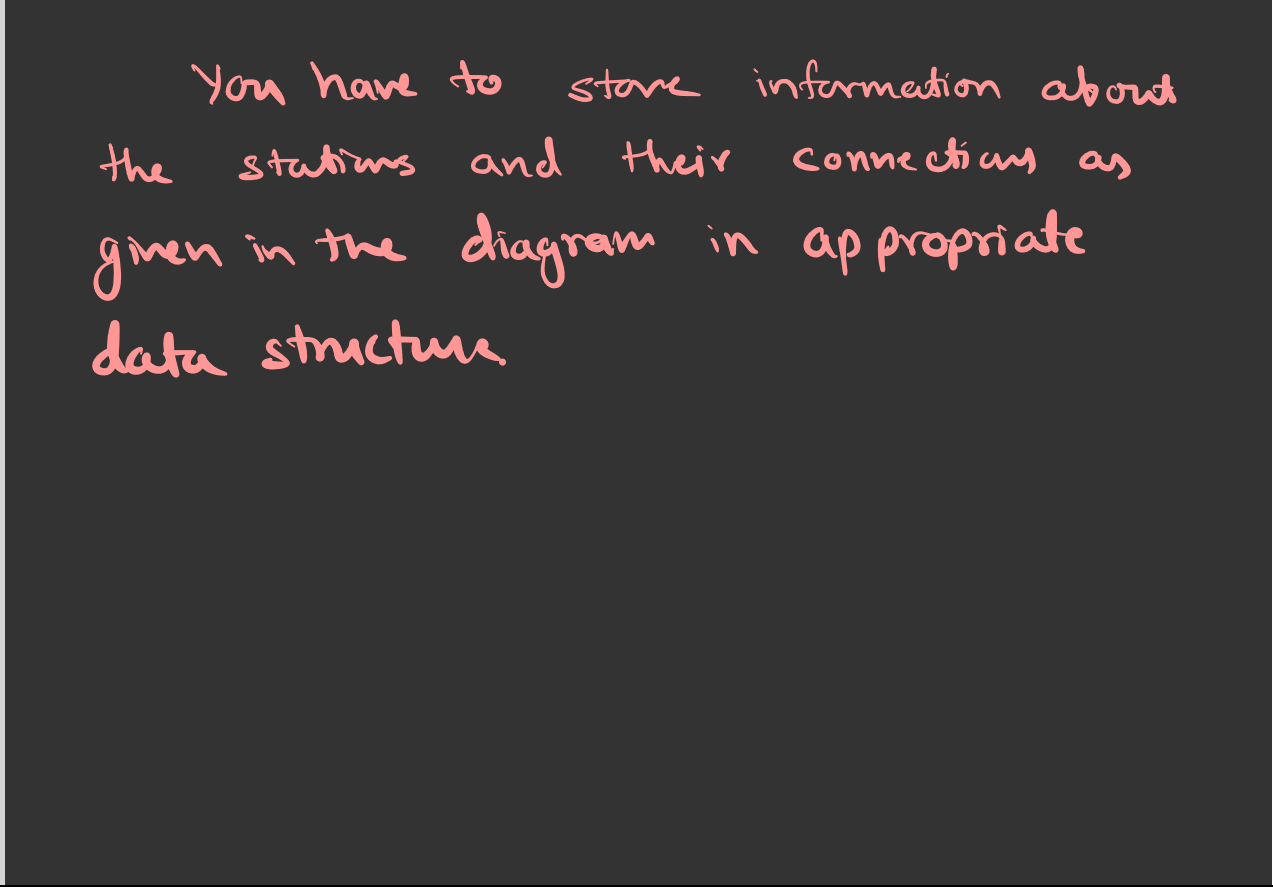 You have to store information about
the stations and their connections as
given in the diagram in appropriate
data structure.